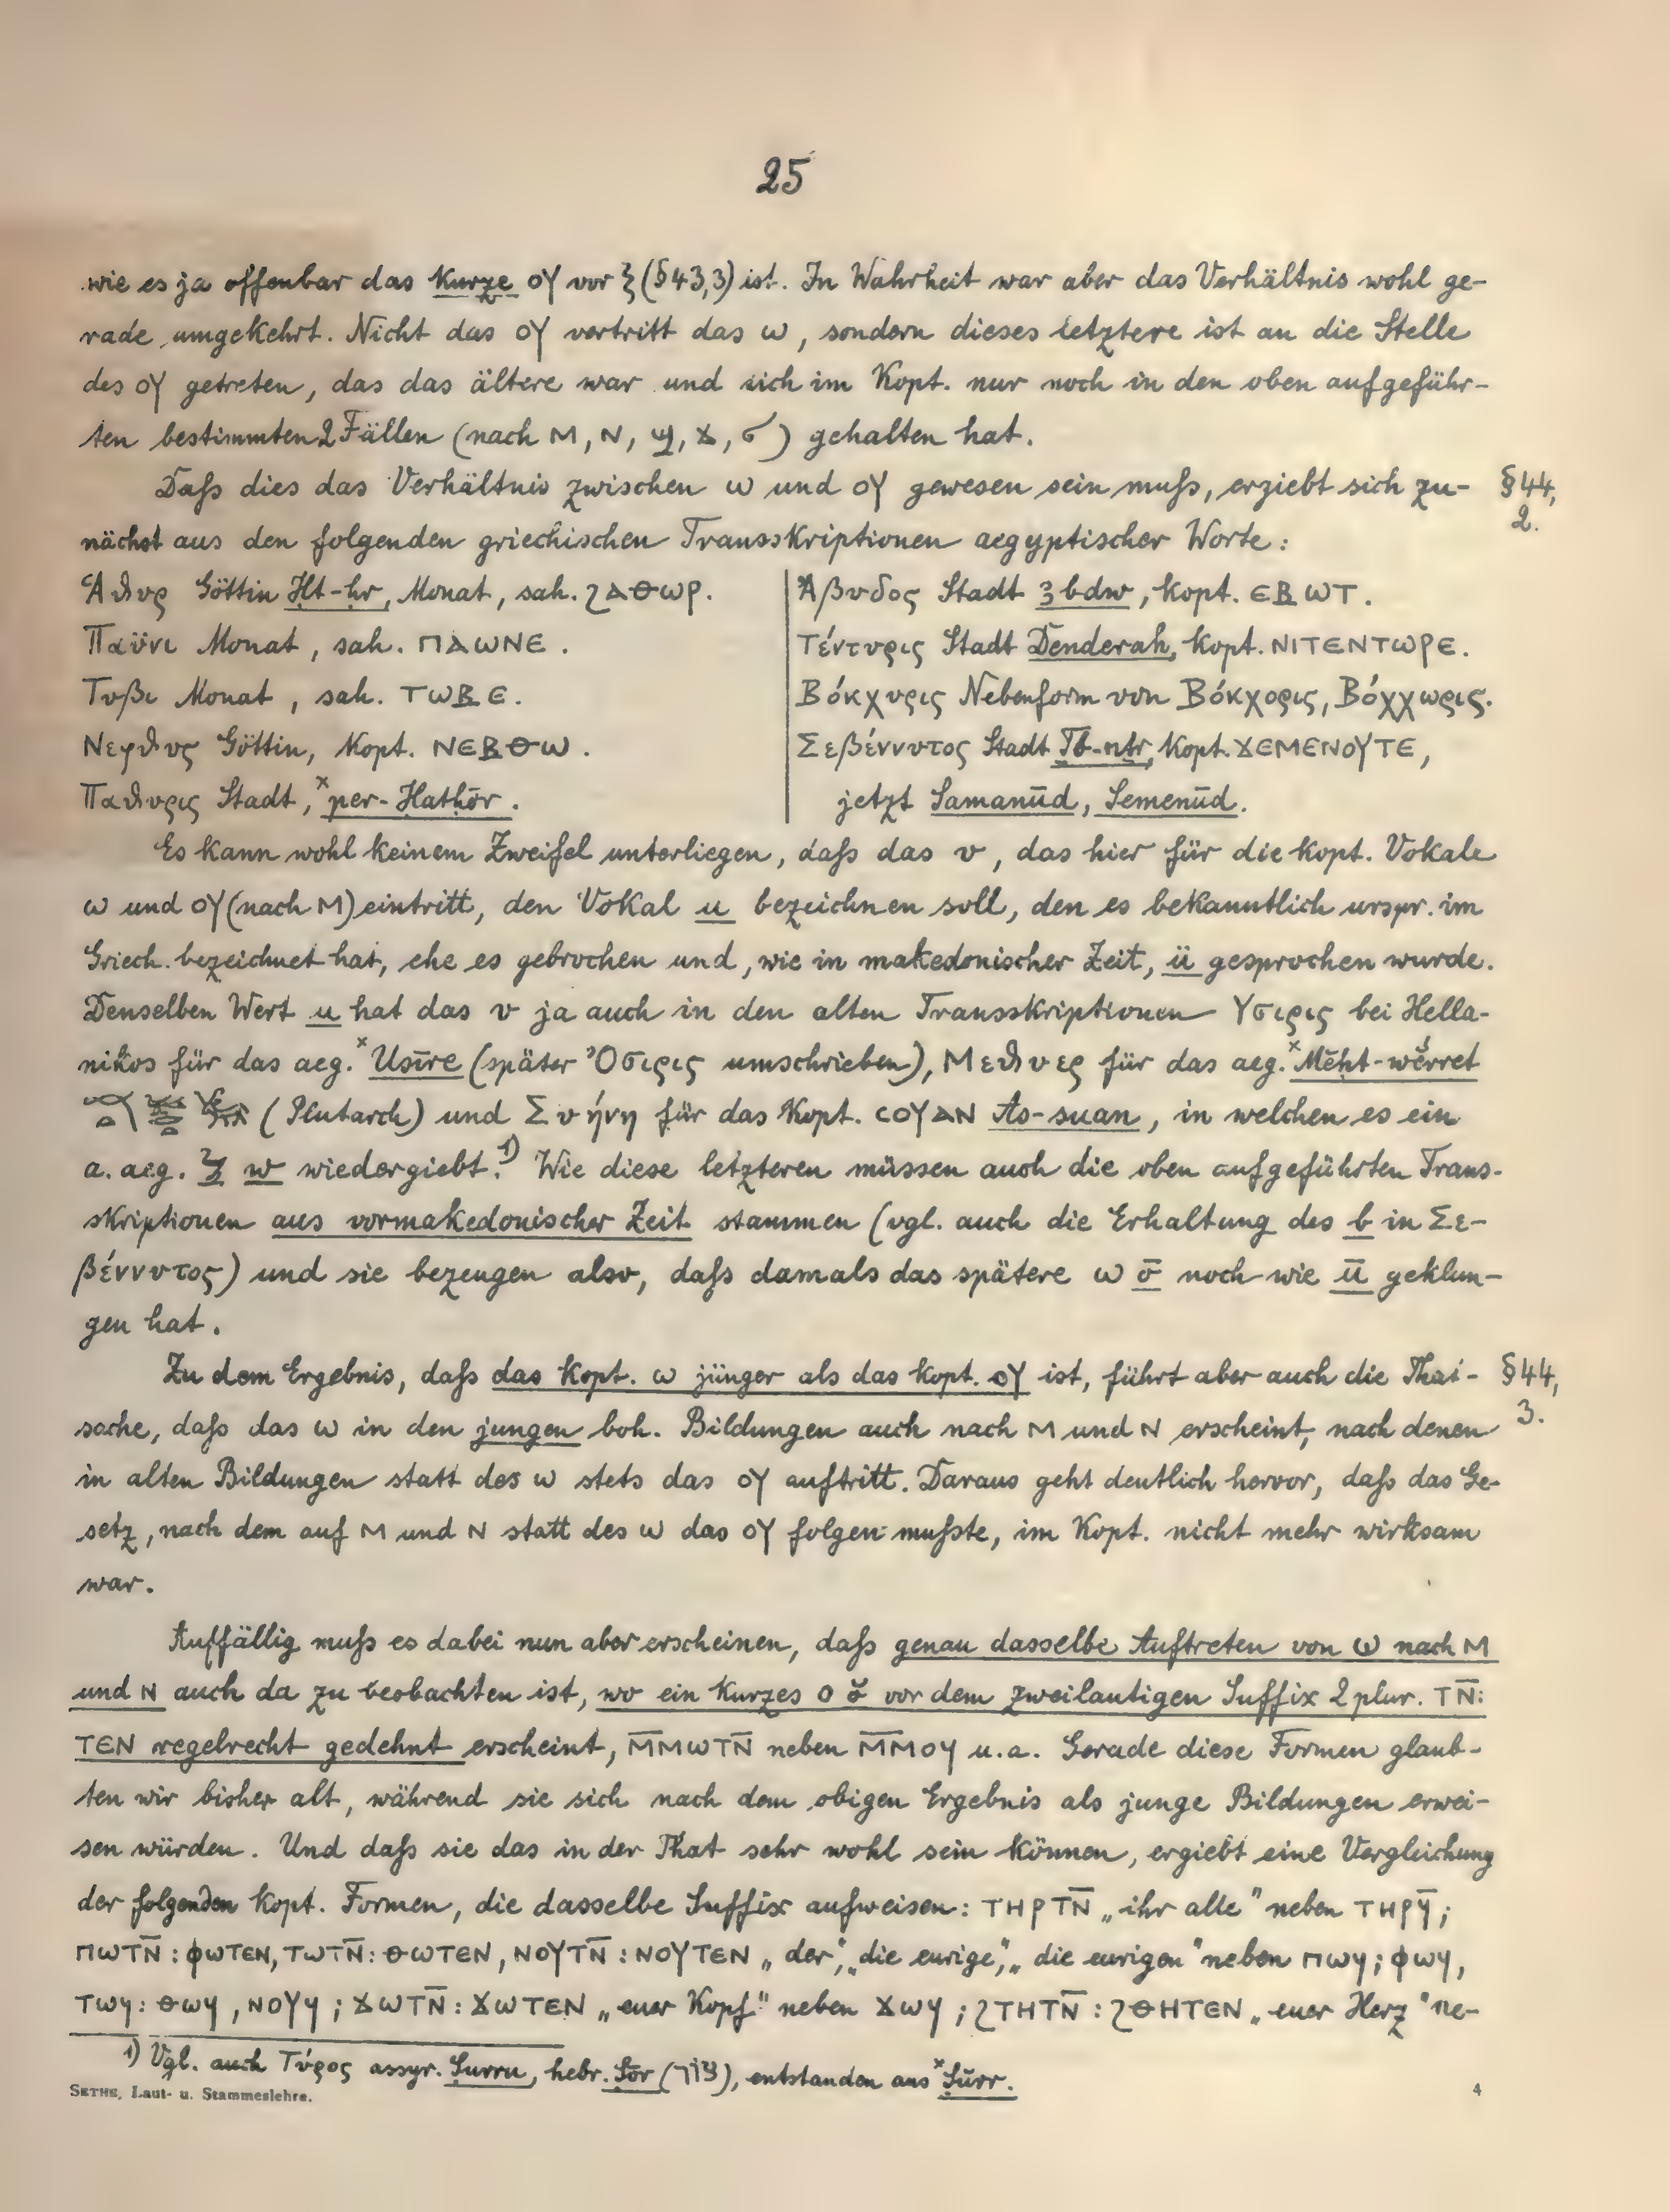 25
wie es ja offenbar das kurze ⲟⲩ vor ꜣ (§43,3) ist. In Wahrheit war aber das Verhältnis wohl ge-
rade umgekehrt. Nicht das ⲟⲩ vertritt das ⲱ, sondern dieses letztere ist an die Stelle
des ⲟⲩ getreten, das das ältere war und sich im Kopt. nur noch in den oben aufgeführ-
ten bestimmten 2 Fällen (nach ⲙ, ⲛ, ϣ, ϫ, ϭ) gehalten hat.
Daſs dies das Verhältnis zwischen ⲱ und ⲟⲩ gewesen sein muſs, ergiebt sich zu- §44,
nächst aus den folgenden griechischen Transskriptionen aegyptischer Worte: 2.
Ἁθυρ Göttin Ḥt-ḥr, Monat, sah. ϩⲁⲑⲱⲣ. Ἄβυδος Stadt ꜣbdw, kopt. ⲉⲃⲱⲧ.
Παϋνι Monat, sah. ⲡⲁⲱⲛⲉ. Τέντυρις Stadt Denderah, kopt. ⲛⲓⲧⲉⲛⲧⲱⲣⲉ.
Τυβι Monat, sah. ⲧⲱⲃⲉ. Βόκχυρις Nebenform von Βόκχορις, Βόχχωρις.
Νεφθυς Göttin, kopt. ⲛⲉⲃⲑⲱ. Σεβέννυτος Stadt Ṯb-nṯr, kopt. ϫⲉⲙⲉⲛⲟⲩⲧⲉ,
Παθυρις Stadt, ˣper-Ḥatḥōr. jetzt Samanūd, Semenūd.
Es kann wohl keinem Zweifel unterliegen, daſs das υ, das hier für die kopt. Vokale
ⲱ und ⲟⲩ (nach ⲙ) eintritt, den Vokal u bezeichnen soll, den es bekanntlich urspr. im
Griech. bezeichnet hat, ehe es gebrochen und, wie in makedonischer Zeit, ü gesprochen wurde.
Denselben Wert u hat das υ ja auch in den alten Transskriptionen Υσιρις bei Hella-
nikos für das aeg. ˣUsīre (später Ὄσιρις umschrieben), Μεθυερ für das aeg. ˣMĕḥt-wĕrret
(Plutarch) und Συήνη für das kopt. ⲥⲟⲩⲁⲛ As-suan, in welchen es ein
a. aeg. w wiedergiebt.¹⁾ Wie diese letzteren müssen auch die oben aufgeführten Trans-
skriptionen aus vormakedonischer Zeit stammen (vgl. auch die Erhaltung des b in Σε-
βέννυτος) und sie bezeugen also, daſs damals das spätere ⲱ ō noch wie ū geklun-
gen hat.
Zu dem Ergebnis, daſs das kopt. ⲱ jünger als das kopt. ⲟⲩ ist, führt aber auch die That- §44,
sache, daſs das ⲱ in den jungen boh. Bildungen auch nach ⲙ und ⲛ erscheint, nach denen 3.
in alten Bildungen statt des ⲱ stets das ⲟⲩ auftritt. Daraus geht deutlich hervor, daſs das Ge-
setz, nach dem auf ⲙ und ⲛ statt des ⲱ das ⲟⲩ folgen muſste, im Kopt. nicht mehr wirksam
war.
Auffällig muſs es dabei nun aber erscheinen, daſs genau dasselbe Auftreten von ⲱ nach ⲙ
und ⲛ auch da zu beobachten ist, wo ein kurzes ⲟ ŏ vor dem zweilautigen Suffix 2 plur. ⲧⲛ̄:
ⲧⲉⲛ regelrecht gedehnt erscheint, ⲙ̄ⲙⲱⲧⲛ̄ neben ⲙ̄ⲙⲟϥ u. a. Gerade diese Formen glaub-
ten wir bisher alt, während sie sich nach dem obigen Ergebnis als junge Bildungen erwei-
sen würden. Und daſs sie das in der That sehr wohl sein können, ergiebt eine Vergleichung
der folgenden kopt. Formen, die dasselbe Suffix aufweisen: ⲧⲏⲣⲧⲛ̄ „ihr alle" neben ⲧⲏⲣϥ̄;
ⲡⲱⲧⲛ̄: ⲫⲱⲧⲉⲛ, ⲧⲱⲧⲛ̄: ⲑⲱⲧⲉⲛ, ⲛⲟⲩⲧⲛ̄: ⲛⲟⲩⲧⲉⲛ „der", „die eurige", „die eurigen" neben ⲡⲱϥ; ⲫⲱϥ,
ⲧⲱϥ: ⲑⲱϥ, ⲛⲟⲩϥ; ϫⲱⲧⲛ̄: ϫⲱⲧⲉⲛ „euer Kopf" neben ϫⲱϥ; ϩⲧⲏⲧⲛ̄: ϩⲑⲏⲧⲉⲛ „euer Herz" ne-
¹⁾ Vgl. auch Τύρος assyr. Ṣurru, hebr. Ṣōr (צור), entstanden aus ˣṢūrr.
SETHE, Laut- u. Stammeslehre. 4